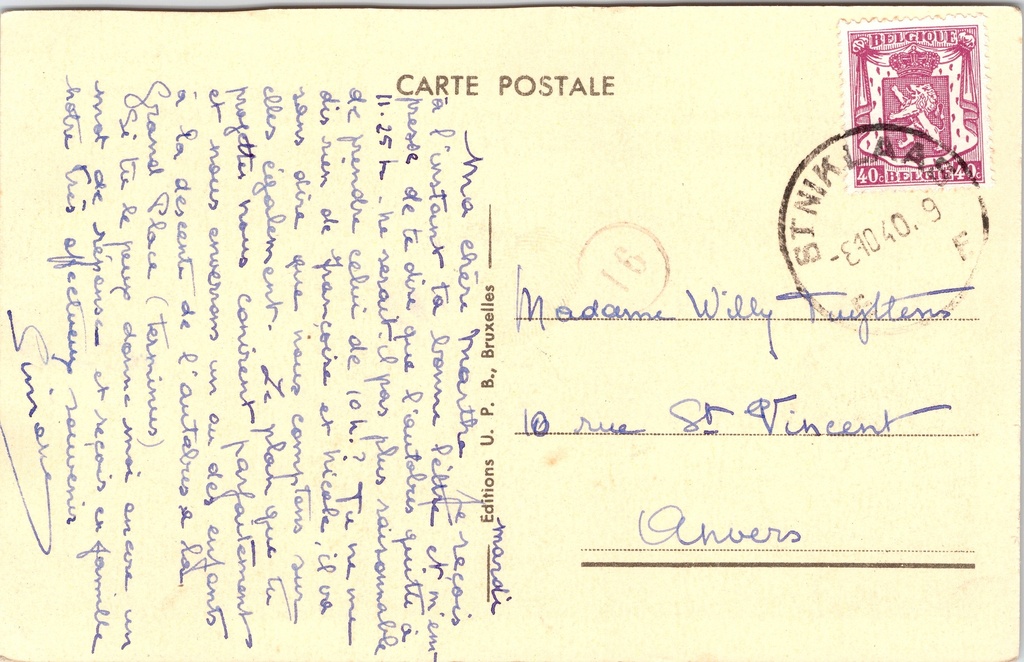 CARTE POSTALE
BELGIQUE
40c BELGIE 40c
ST NIKLAAS
-8 10 40. 9
F
16
Editions U. P. B., Bruxelles
Madame Willy Tuyttens
10 rue St Vincent
Anvers
mardi
Ma chère Martha Je reçois
à l'instant ta bonne lettre et m'em-
presse de te dire que l'autobus quitte à
11.25 h. ne serait-il pas plus raisonnable
de prendre celui de 10 h.? Tu ne me
dis rien de Françoise et Nicole, il va
sans dire que nous comptons sur
elles également. Le plan que tu
projettes nous convient parfaitement
et nous enverrons un ou des enfants
à la descente de l'autobus à la
Grand Place (terminus)
Si tu le peux donne moi encore un
mot de réponse et reçois en famille
notre très affectueux souvenir
Simone